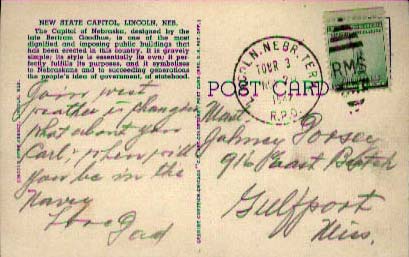 NEW STATE CAPITOL, LINCOLN, NEB.
The Capitol of Nebraska, designed by the
late Bertram Goodhue, is one of the most
dignified and imposing public buildings that
has been erected in this country. It is gravely
simple; its style is essentially its own; it per-
fectly fulfills its purposes, and it symbolizes
to Nebraskans and to succeeding generations
the people's idea of government, of statehood.
Going west
weather is changed
What about you
Carl - when will
you be in the
Navy
Love Dad
POST CARD
LINCOLN, NEBR. TERM.
TOUR 3
R.P.O.
RMS
Johney
916 East Beach
Gulfport
Miss.